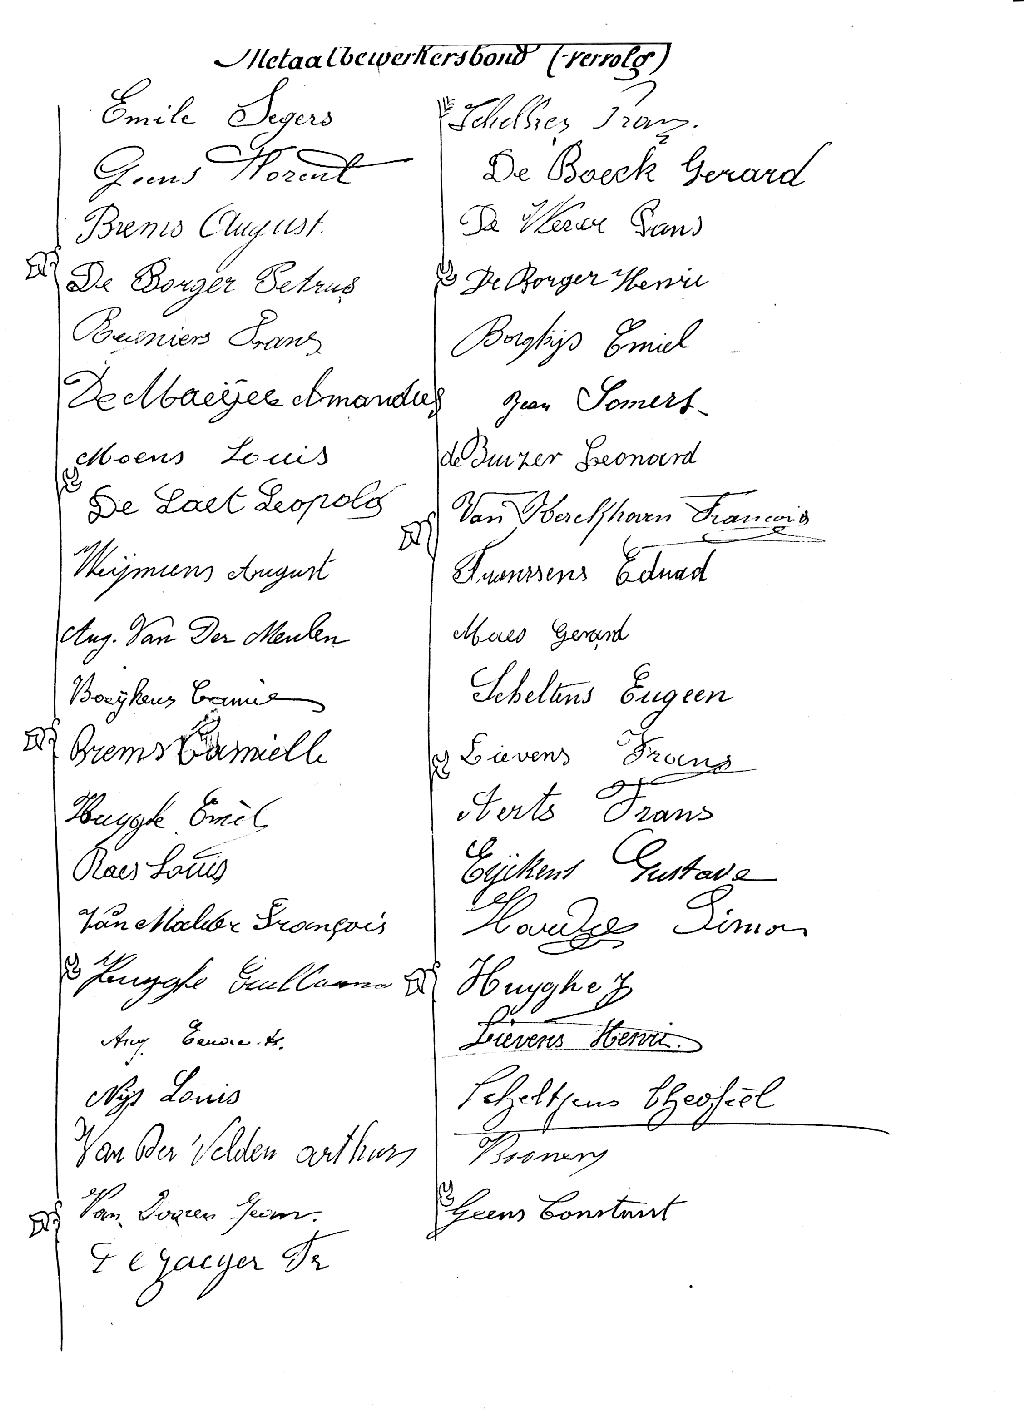 Metaalbewerkersbond (vervolg)
Emile Segers
Geens Florent
Brems August
De Borger Petrus
Reyniers Frans
De Maeijer Amandus
Moens Louis
De Laet Leopold
Weijmiens August
Aug. Van Der Meulen
Boeijkens Camiel
Brems Camielle
Huyghe Emiel
Raes Louis
Van Malder François
Huyghe Guillaume
Aug.
Nijs Louis
Van Der Velden arthurs
Van Dooren Jean.
De Jaeger Fr
Frans.
De Boeck Gerard
De Wever Frans
De Borger Henri
Borghijs Emiel
Jean Somers
de Buizer Leonard
Van Herckhoven François
Franssens Eduard
Maes Gerard
Scheltens Eugeen
Lievens Frans
Aerts Frans
Eijkens Gustave
Simon
Huyghe J
Lievens Henri.
Scheltjens Theofiel
Geens Constant